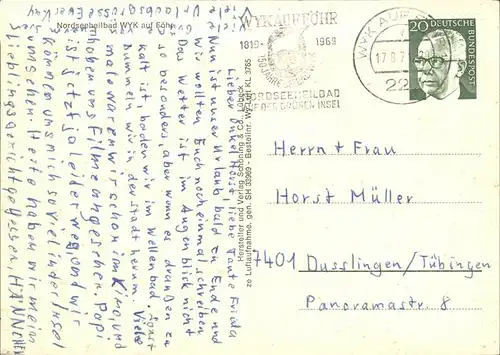 Nordseeheilbad WYK auf Föhr
Lieber Onkel Horst, liebe Tante Frieda
Nun ist unser Urlaub bald zu Ende und
wir wollten Euch noch einmal schreiben
Das Wetter ist im Augenblick nicht
so besonders, aber wenn es draußen zu
kalt ist baden wir im Wellenbad sonst
bummeln wir in der Stadt herum. Viele
male waren wir schon im Kino und
haben uns Filme angesehen. Papi
ist jetzt ja leider weg, und wir
können uns nicht so viel in der Insel
Heute haben wir mein
Lieblingsgericht gegessen, HÄNNCHEN
Viele
Urlaubsgrüße Euer
Hersteller und Verlag Schöning & Co., Lübeck
ze Luftaufnahme, gen. SH 33969 - Bestellnr. Wy Luft KL 3785
WYK AUF FÖHR
1819 1969
150 JAHRE
NORDSEEHEILBAD
AUF DER GRÜNEN INSEL
WYK AUF
17.8.7
22
20
DEUTSCHE BUNDESPOST
Herrn + Frau
Horst Müller
7401 Dusslingen/Tübingen
Panoramastr. 8